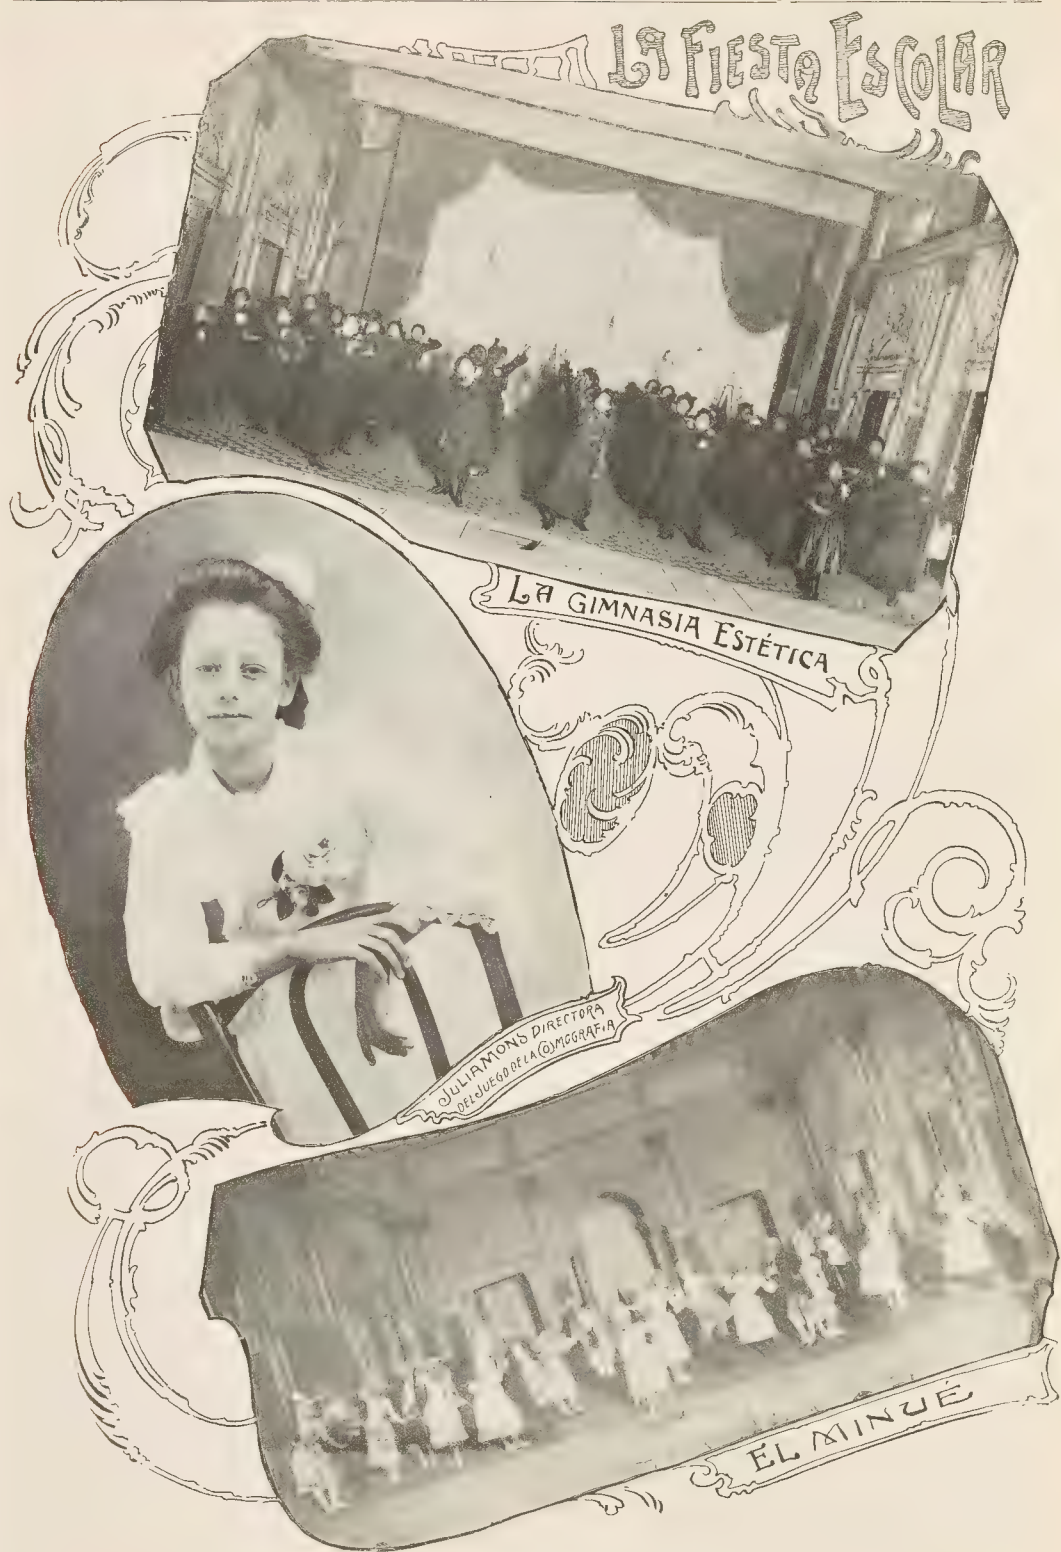 LA FIESTA ESCOLAR
LA GIMNASIA ESTÉTICA
JULIA MONS DIRECTORA
DEL JUEGO DE LA COSMOGRAFIA
EL MINUÉ